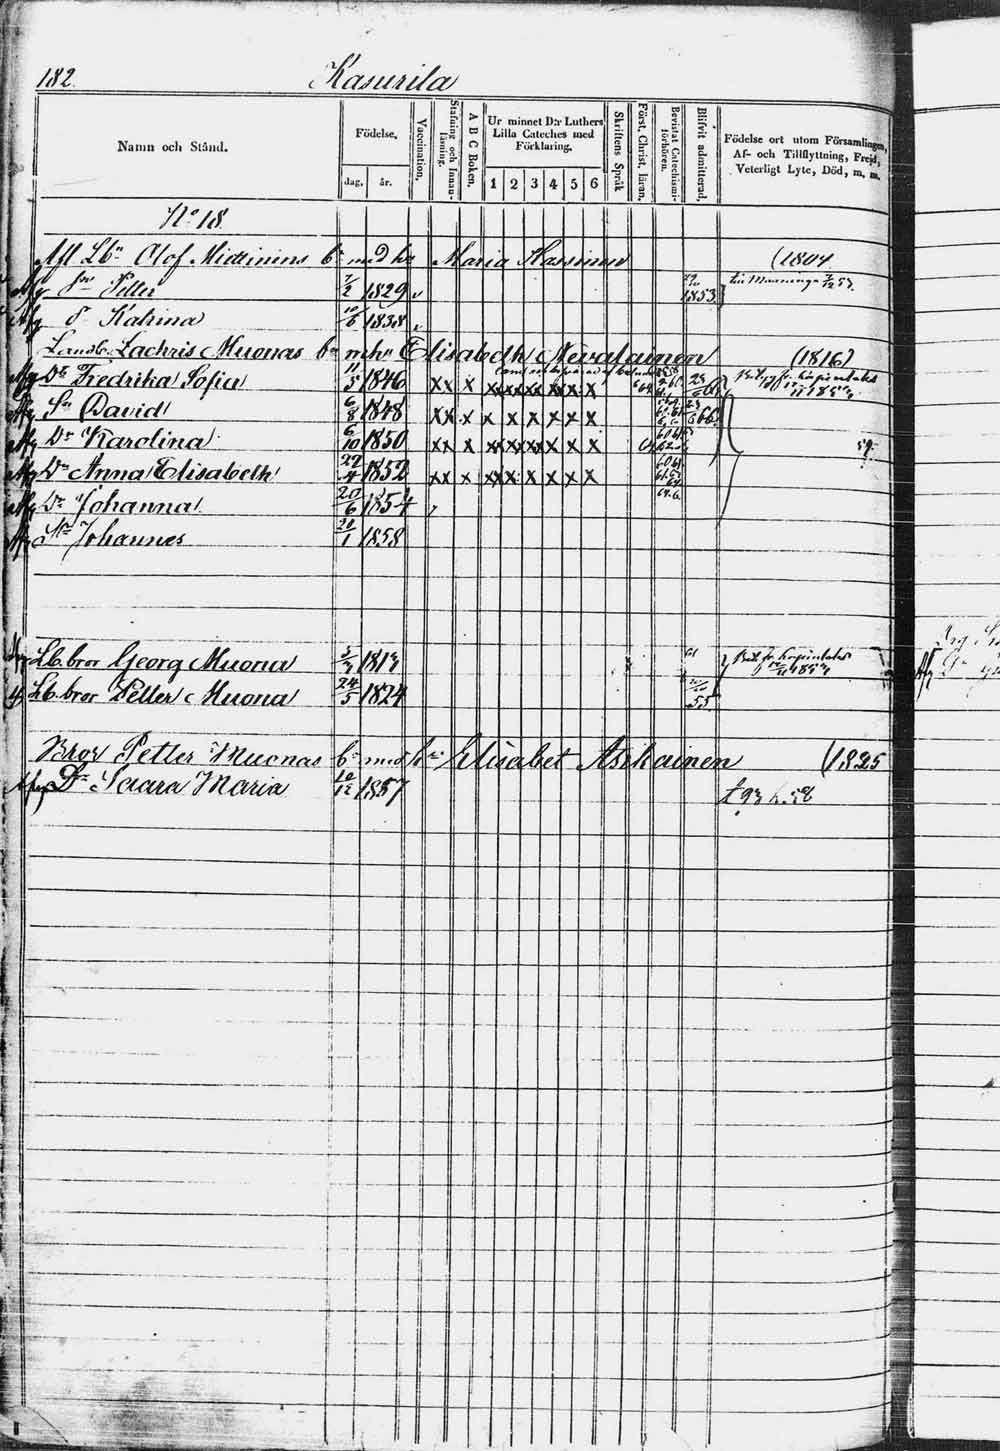 182. Kasurila
Namn och Stånd.
Födelse,
dag,
år.
Vaccination.
Stafning och Innanläsning.
A B C Boken.
Ur minnet D:r Luthers Lilla Cateches med Förklaring.
1 2 3 4 5 6
Skriftens Språk
Först. Christ. läran.
Bevistat Catechismiförhören.
Blifvit admitterad.
Födelse ort utom Församlingen, Af- och Tillflyttning, Frejd, Veterligt Lyte, Död, m. m.
No 18
Afl Lbn Olof Miettinens bn med hu Maria Kassinen (1804
Sn Petter 7/2 1829 1853
D Katrina 10/6 1838
Landb. Zachris Muonas bn m hu Elisabeth Nevalainen (1816)
Dr Fredrika Sofia 11/5 1846 x x x x x x x x x
Sn David 6/8 1848 x x x x x x x x x 66
Dr Karolina 6/10 1850 x x x x x x x x x 59.
Dr Anna Elisabeth 22/4 1852 x x x x x x x x x
Dr Johanna 20/6 1854
Sn Johannes 20/1 1858
Lb. bror Georg Muona 1813
Lb. bror Petter Muona 24/5 1824 55
Bror Petter Muonas bn med hu Elisabet Asikainen (1825
Dr Saara Maria 10/12 1857